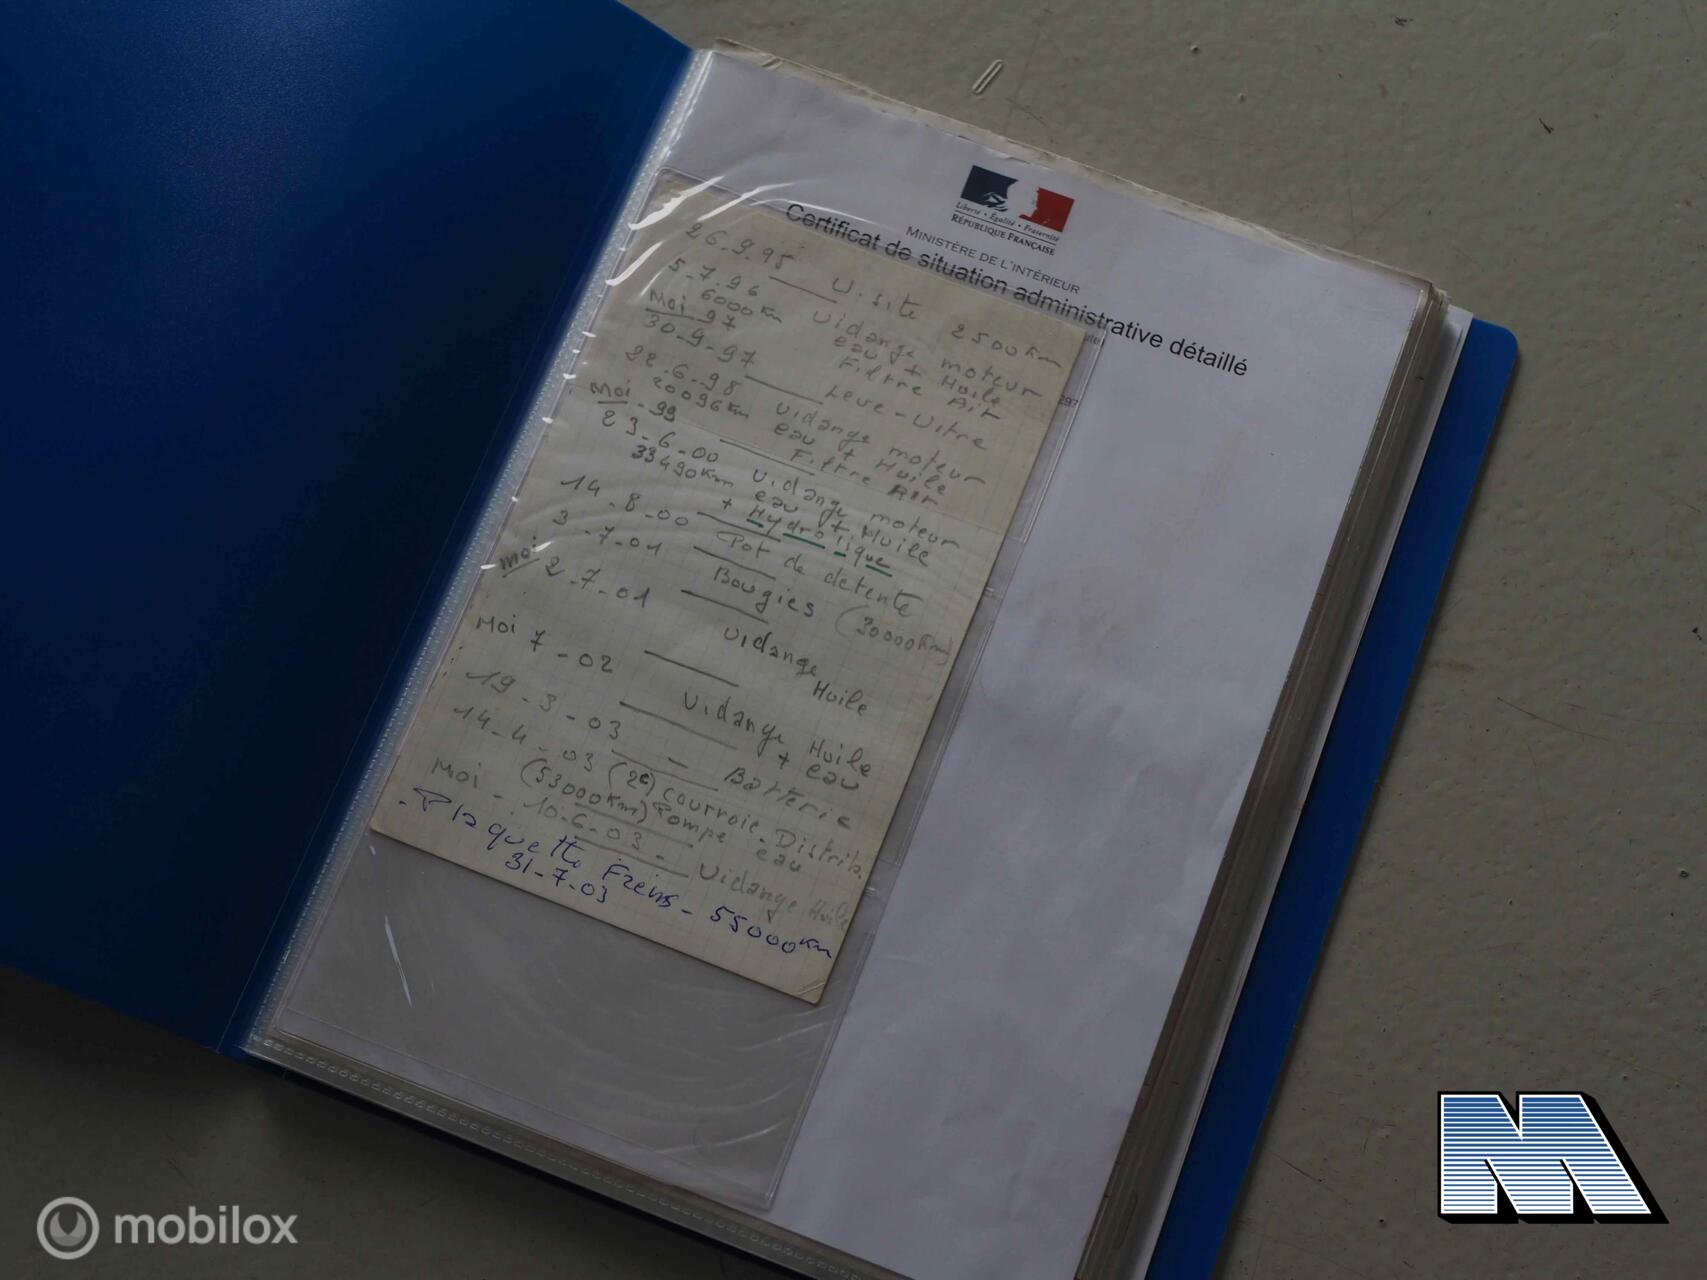 Liberté • Égalité • Fraternité
RÉPUBLIQUE FRANÇAISE
MINISTÈRE DE L'INTÉRIEUR
Certificat de situation administrative détaillé
26.9.95 — Visite 2500 Km
5-7.96 Vidange moteur
6000 Km eau + Huile
Moi 97 Filtre Air
30-9-97 — Leve-Vitre
22.6-98 Vidange moteur
20096 Km eau + Huile
Moi - 99 — Filtre Air
23-6-00 Vidange moteur
33490 Km eau + Huile
+ Hydrolique
14.8-00 — Pot de detente
3-7-01 — Bougies (30000 Km)
Moi 2-7-01 — Vidange Huile
Moi 7-02 — Vidange Huile
+ eau
19-3-03 — Batterie
14-4-03 (2e) Courroie-Distrib.
(53000 Km) Pompe eau
Moi - 10-6-03 - Vidange Huile
- Plaquette Freins - 55000 Km
31-7-03
297
M
mobilox